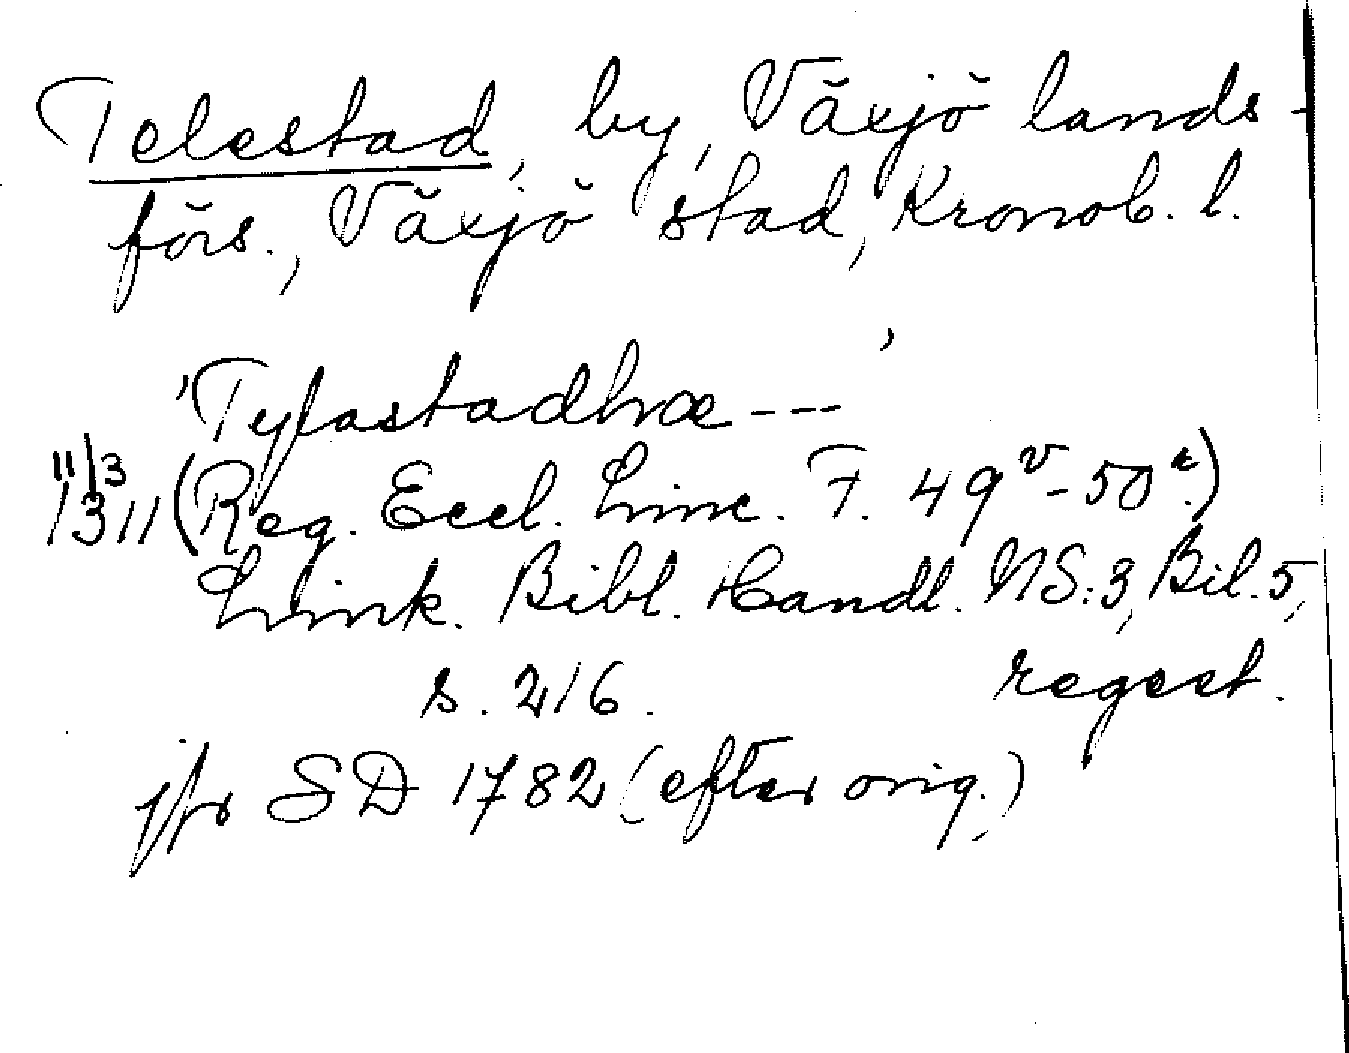 Telestad, by, Växjö lands-
förs., Växjö stad, Kronob. l.
'Tylastadhæ ---'
11/3
1311 (Reg. Eccl. Linc. F. 49v-50r.)
Link. Bibl. Handl. NS:3, Bil. 5,
s. 216. regest.
jfr SD 1782 (efter orig.)